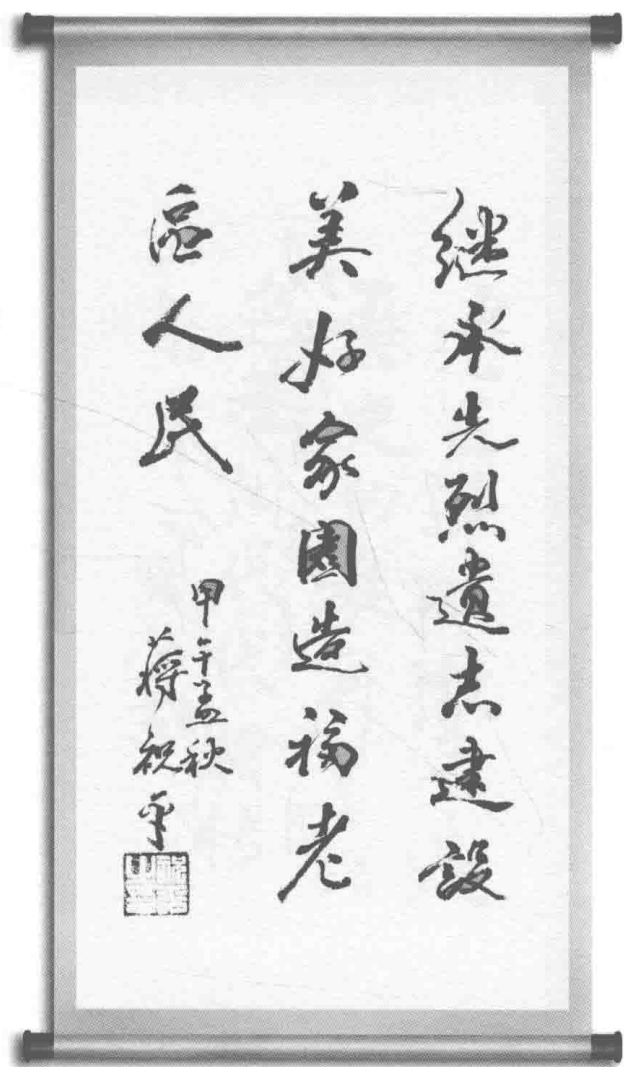 继承先烈遗志建設
美好家園造福老
區人民
甲午孟秋
蒋祝平